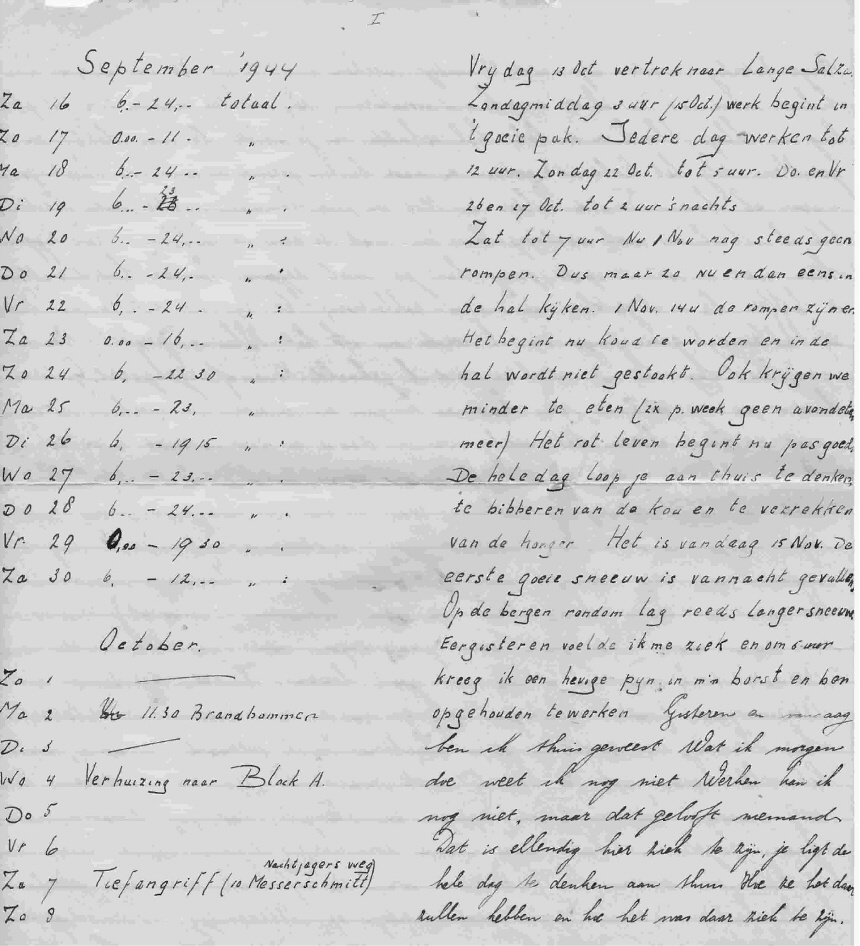 I
September '1944
Za 16 6.- 24,.. totaal.
Zo 17 0.00 - 11 - "
Ma 18 6... - 24 .. " .
Di 19 6... - 23 .. " .
Wo 20 6.. - 24,.. " :
Do 21 6.. - 24,. " :
Vr 22 6,.. - 24 . " :
Za 23 0.00 - 16,.. " :
Zo 24 6, - 22 30 " :
Ma 25 6,.. - 23, "
Di 26 6, - 19 15 " :
Wo 27 6,.. - 23... " .
Do 28 6.. - 24... " .
Vr 29 0,00 - 19 30 " .
Za 30 6, - 12,.. " :
October.
Zo 1 —
Ma 2 11.30 Brandbommen
Di 3 —
Wo 4 Verhuizing naar Block A.
Do 5
Vr 6
Nachtjagers weg
Za 7 Tiefangriff (10 Messerschmitt)
Zo 8
Vrydag 13 Oct vertrek naar Lange Salza.
Zondagmiddag 3 uur (15 Oct.) werk begint in
't goeie pak. Iedere dag werken tot
12 uur. Zondag 22 Oct. tot 5 uur. Do. en Vr
26 en 27 Oct. tot 2 uur 's nachts
Zat tot 7 uur Nu 1 Nov nog steeds geen
rompen. Dus maar zo nu en dan eens in
de hal kyken. 1 Nov. 14 u de rompen zyn er.
Het begint nu koud te worden en in de
hal wordt niet gestookt. Ook krygen we
minder te eten (2x p. week geen avondeten
meer) Het rot leven begint nu pas goed.
De hele dag loop je aan thuis te denken,
te bibberen van de kou en te verrekken
van de honger. Het is vandaag 15 Nov. De
eerste goeie sneeuw is vannacht gevallen,
Op de bergen rondom lag reeds langer sneeuw.
Eergisteren voelde ik me ziek en om 5 uur
kreeg ik een hevige pyn in m'n borst en ben
opgehouden te werken Gisteren en
ben ik thuis geweest Wat ik morgen
doe weet ik nog niet Werken kan ik
nog niet, maar dat gelooft niemand
Dat is ellendig hier ziek te zyn, je ligt de
hele dag te denken aan thuis Hoe ze het daar
zullen hebben en hoe het was daar ziek te zyn.